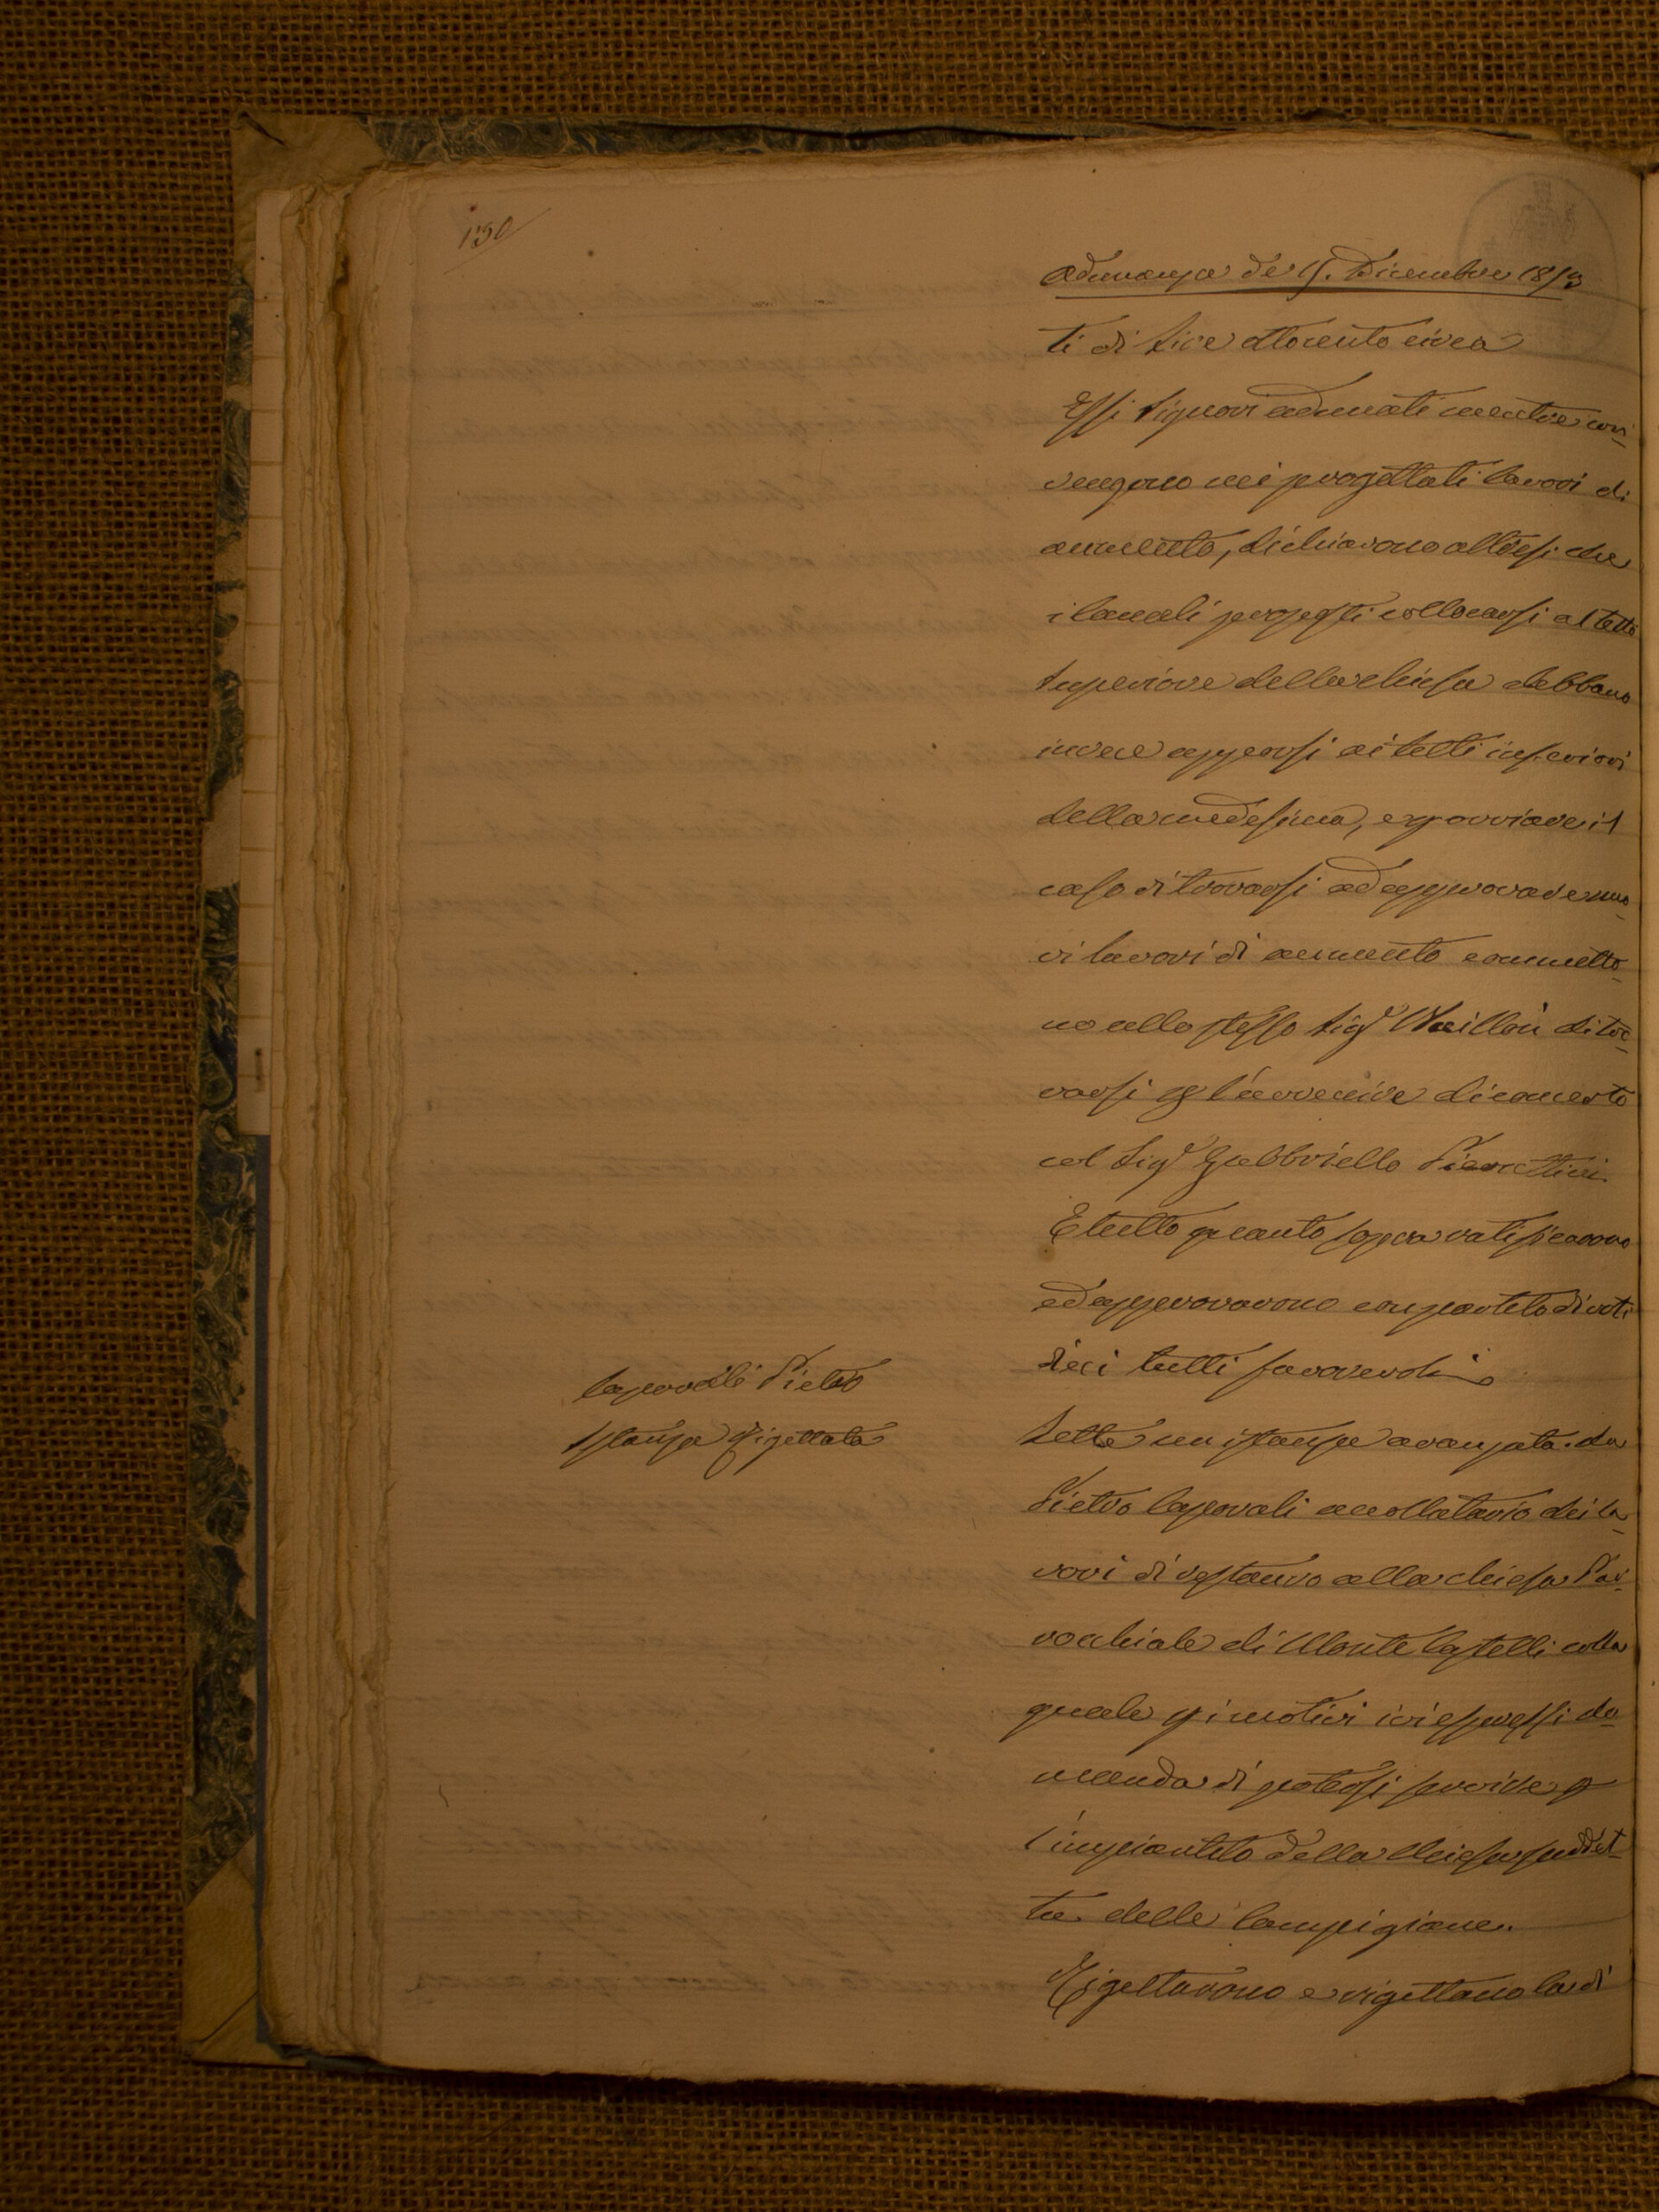 130
Adunanza de 15. Dicembre 1873
ti di Lire Ottocento circa
Essi Signori adunati mentre con-
vengono nei progettati lavori di
aumento, dichiarono altresi che
i Canali proposti collocarsi al tetto
superiore della chiesa debbano
invece apporsi ai tetti inferiori
della medesima, e p ovviare il
caso di trovarsi ad approvare nuo-
vi lavori di aumento commetto-
no allo stesso Sig.r di tro-
varsi p l'avvenire di concerto
col Sig.r Gabbriello
E tutto quanto sopra ratificarono
ed approvarono con partito di voti
dieci tutti favorevoli
Caporali Pietro
Istanza Rigettata
Letta un istanza avanzata da
Pietro Caporali accollatario dei la-
vori di restauro alla chiesa Par-
rocchiale di Monte Castelli colla
quale p i motivi ivi espressi do-
manda di potersi servire p
l'impiantito della Chiesa suddet-
ta delle Campigiane.
Rigettarono e rigettano la di